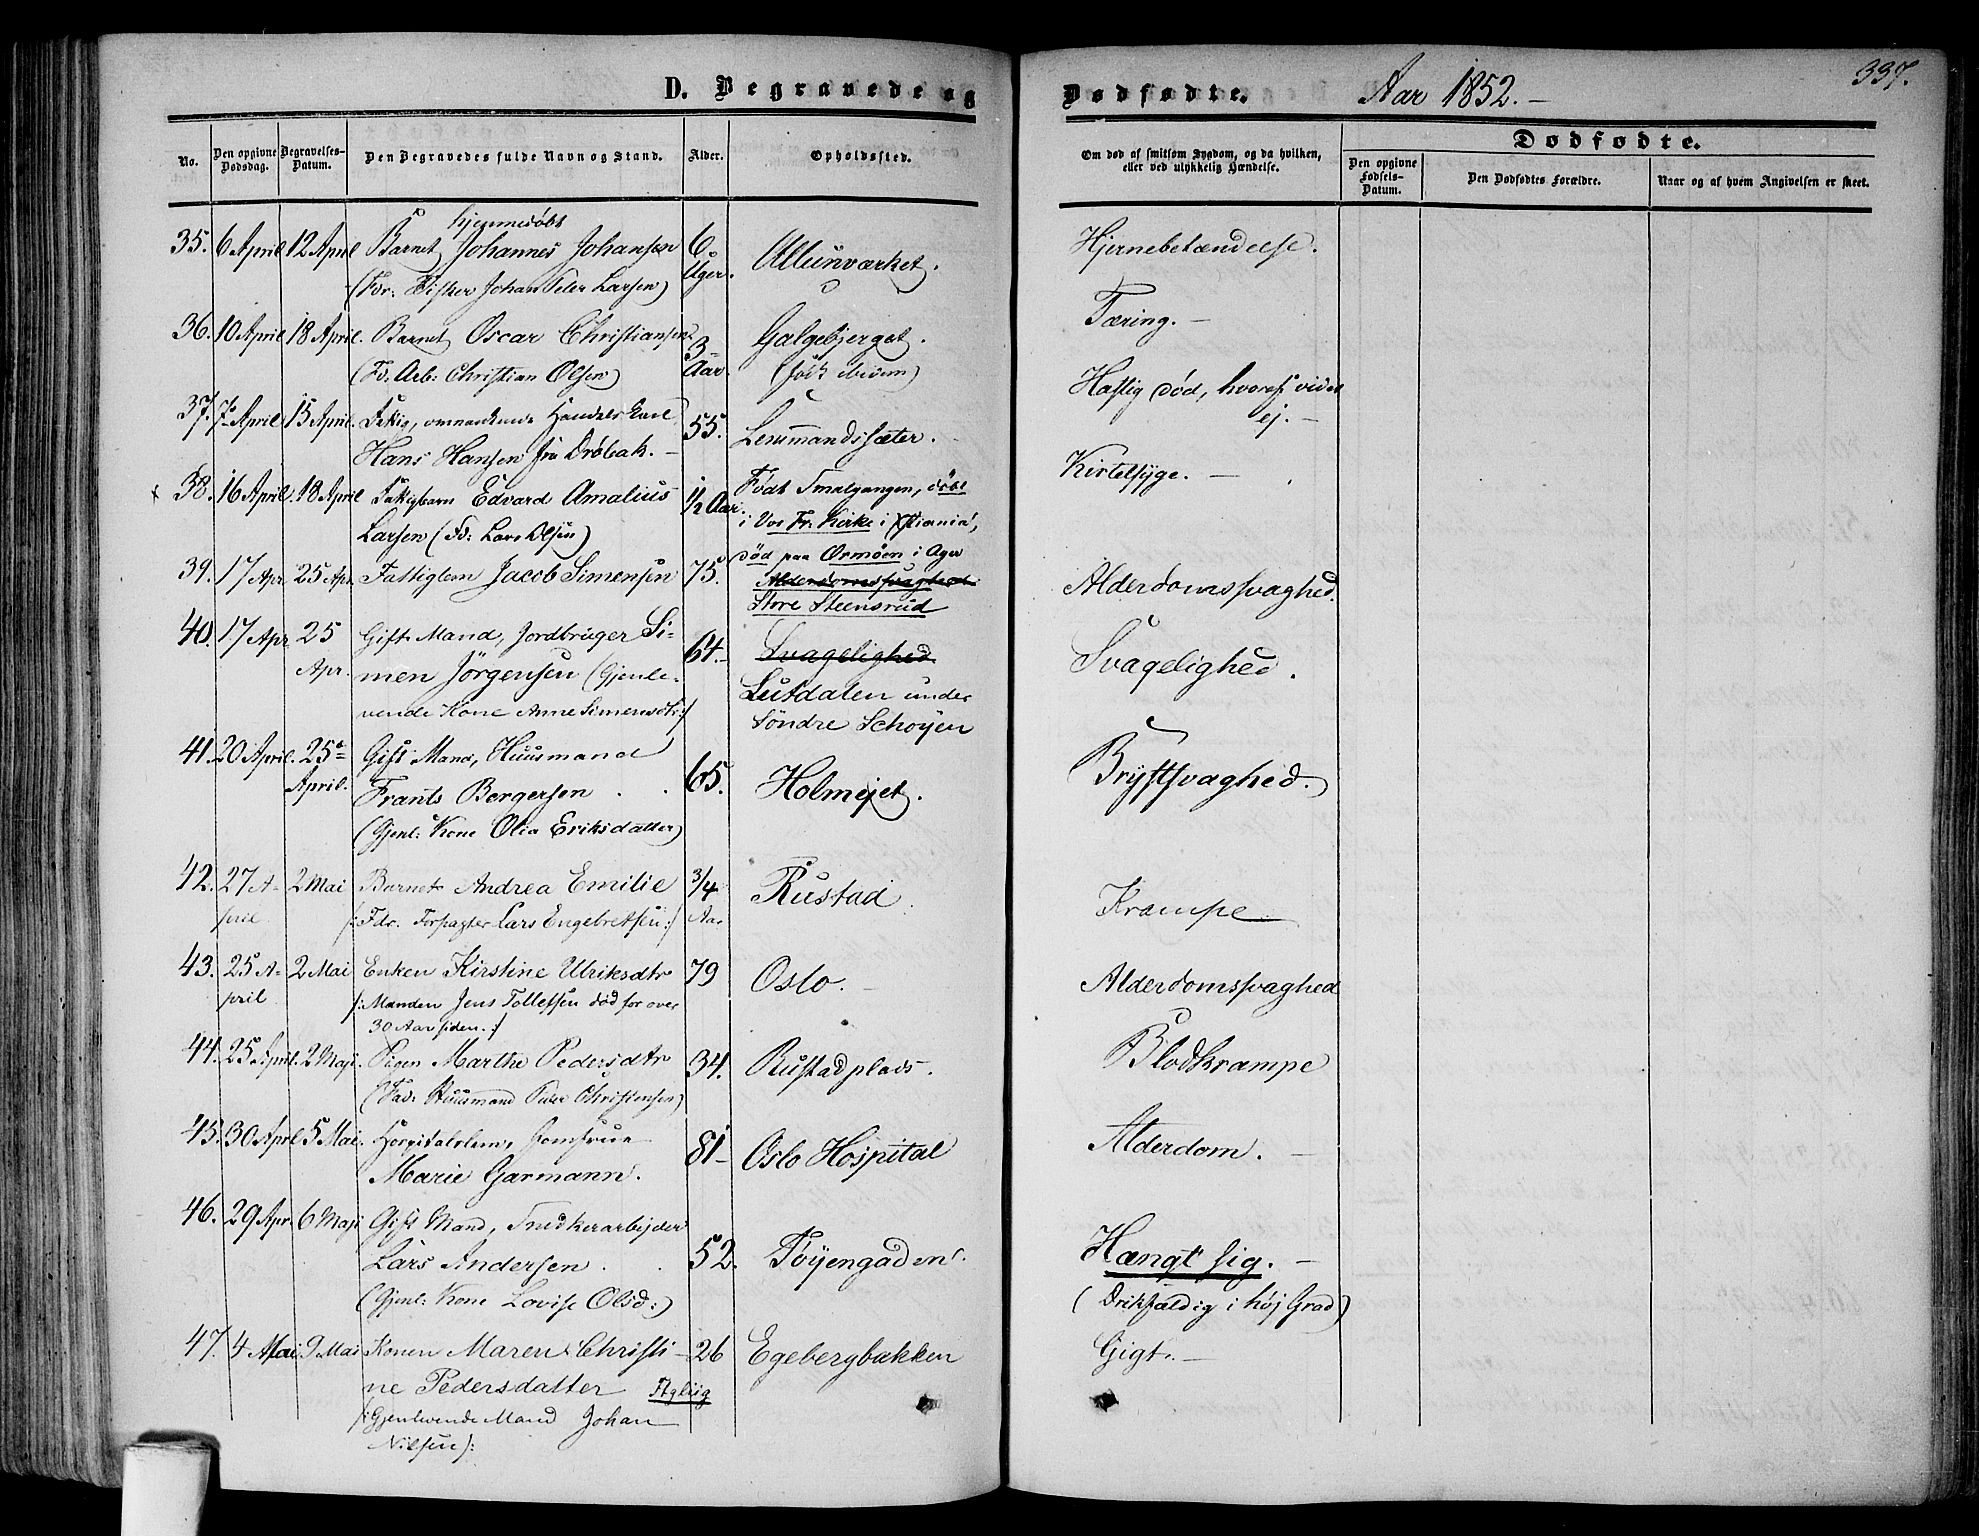 D. Begravede og
Dødfødte. Aar 1852.-
337.
No. Den opgivne Dødsdag. Begravelses-Datum. Den Begravedes fulde Navn og Stand. Alder. Opholdssted.
Om død af smitsom Sygdom, og da hvilken, eller ved ulykkelig Hændelse.
Dødfødte.
Den opgivne Fødsels-Datum. Den Dødfødtes Forældre. Naar og af hvem Angivelsen er skeet.
hjemmedøbt
35. 6 April 12 April Barnet Johannes Johansen 6 Uger. Alunværket. Hjernebetændelse.
(Fdr: Fisker Johan Peter Larsen)
36. 10 April 18 April. Barnet Oscar Christiansen 3 Aar. Galgebjerget. Tæring. -
(Fd. Arb: Christian Olsen) (født ibidem)
37. 7de April 15 April. Fattig, omvankende Handelskarl 55. Lensmandssæter. Hastig død, hvoraf vides
Hans Hansen fra Drøbak. - ej. -
38. 16 April. 18 April Fattigbarn Edvard Amalius 1 1/2 Aar. Født Smalgangen, døbt Kirtelsyge. -
Larsen (Fd: Lars Olsen) i Vor Fr: Kirke i Xstiania,
død paa Ormøen i Ager
39. 17 Apr. 25 Apr. Fattiglem Jacob Simensen 75. Alderdomssvaghed. Alderdomssvaghed.
Store Steensrud
40. 17 Apr. 25 Apr. Gift Mand, Jordbruger Si- 64. - Svagelighed Svagelighed.
men Jörgensen (Gjenle- Lutdalen under
vende Kone Anne Simensdtr:/ Söndre Schøyen
41. 20 April. 25de April. Gift Mand, Huusmand 65. Holmejet. Brystsvaghed.
Frants Borgersen . .
(Gjenl: Kone Olia Eriksdatter)
42. 27 April 2 Mai Barnet Andrea Emilie 3/4 Aar Rustad. Krampe
/: Fdr. Forpagter Lars Engebretsen :/
43. 25 April 2 Mai Enken Kirstine Ulriksdtr 79 Oslo. - Alderdomssvaghed
/: Manden Jens Tollefsen død for over
30 Aar siden. :/
44. 25 April. 2 Maji. Pigen Marthe Pedersdtr 34. Rustadplads. Blodkrampe
(Fad: Huusmand Peder Christensen)
45. 30 April 5 Mai. Hospitalslem, Jomfrue 81- Oslo Hospital Alderdom. -
Marie Garmann.
46. 29 Apr. 6 Maji Gift Mand, Snedkerarbejder 52. Tøyengaden. Hængt sig. -
Lars Andersen . .
(Gjenl: Kone Lovise Olsd:) (Drikfældig i høj Grad)
47. 4 Mai 9 Mai Konen Maren Christi- 26 Egebergbakken Gigt. -
ne Pedersdatter
/: Gjenlevende Mand Johan
Nilsen):